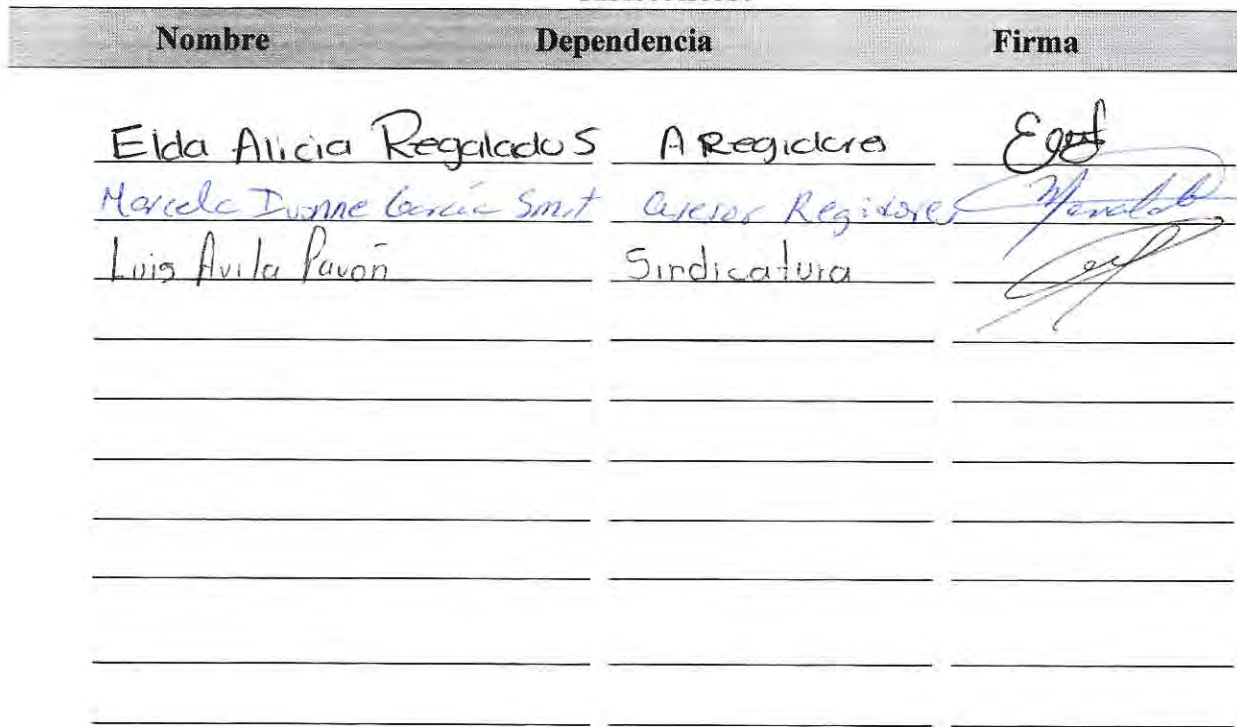 Nombre Dependencia Firma
Elda Alicia Regalado S A Regidores
Marcela Ivonne García Smit asesor Regidores
Luis Avila Pavón Sindicatura